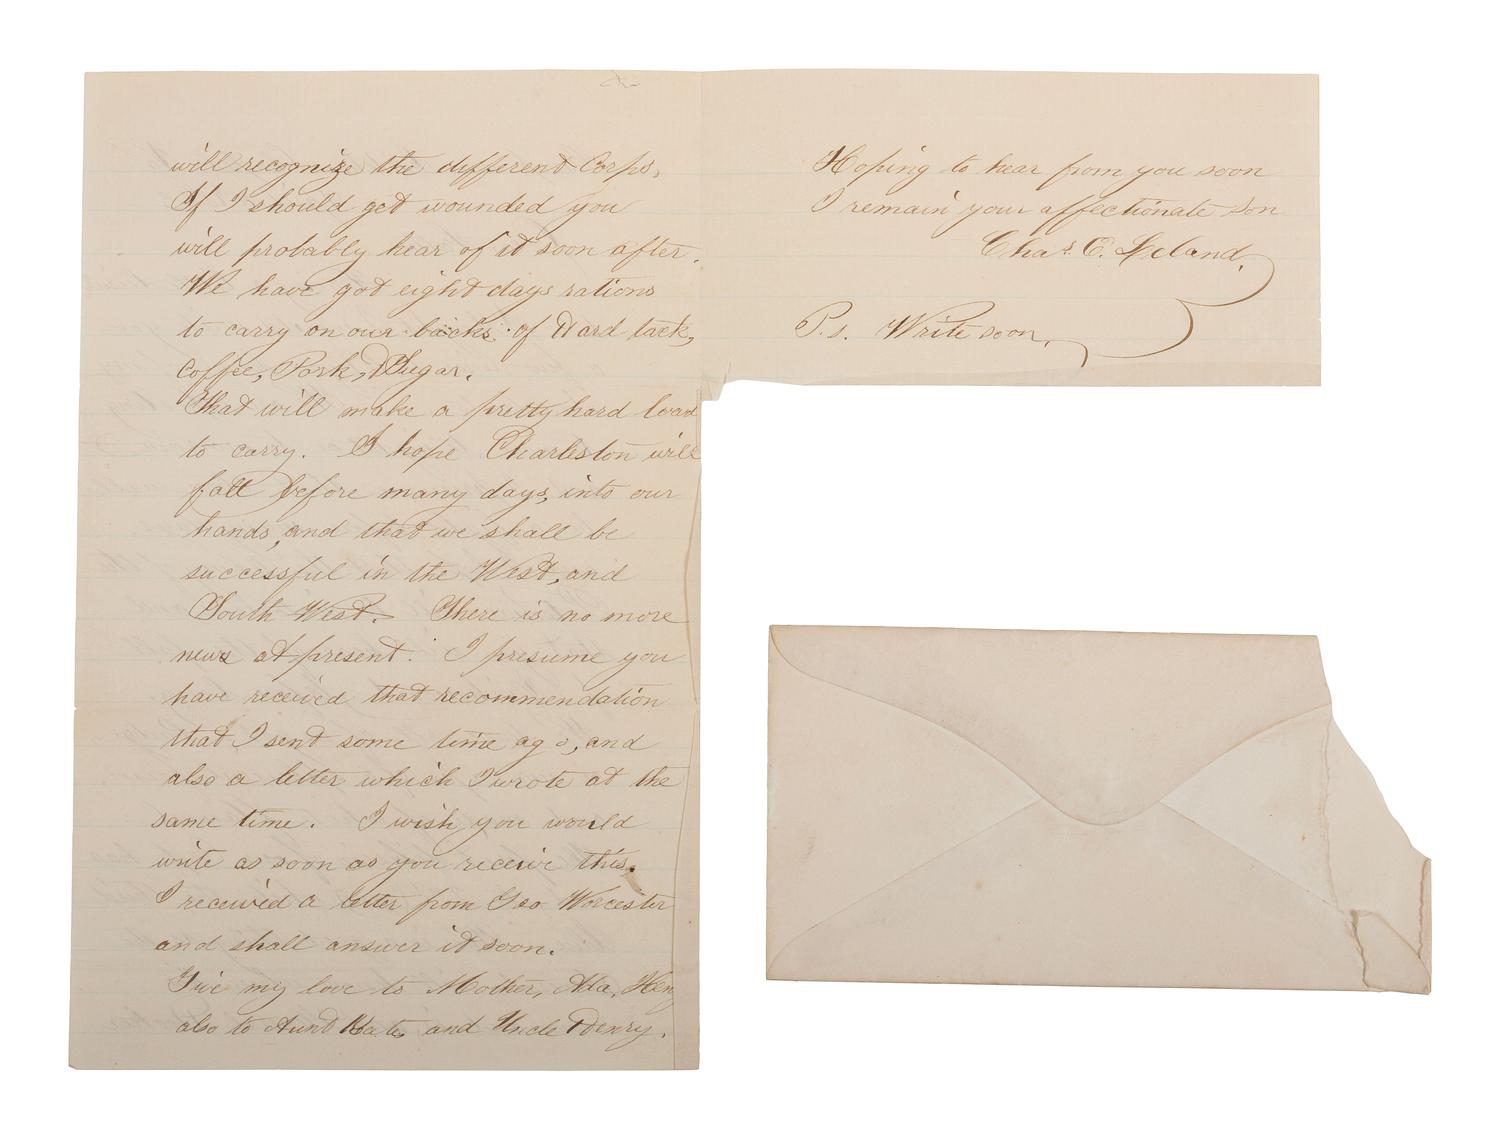 will recognize the different Corps,
If I should get wounded you
will probably hear of it soon after.
We have got eight days rations
to carry on our backs of Hard tack,
Coffee, Pork, Sugar.
That will make a pretty hard load
to carry. I hope Charleston will
fall before many days, into our
hands, and that we shall be
successful in the West, and
South West. There is no more
news at present. I presume you
have received that recommendation
that I sent some time ago, and
also a letter which I wrote at the
same time. I wish you would
write as soon as you receive this.
I received a letter from Geo Worcester
and shall answer it soon.
Give my love to Mother, Ada, Hen
also to Aunt Kate and Uncle Henry.
Hoping to hear from you soon
I remain your affectionate Son
Chas. E. Leland.
P.s. Write soon.